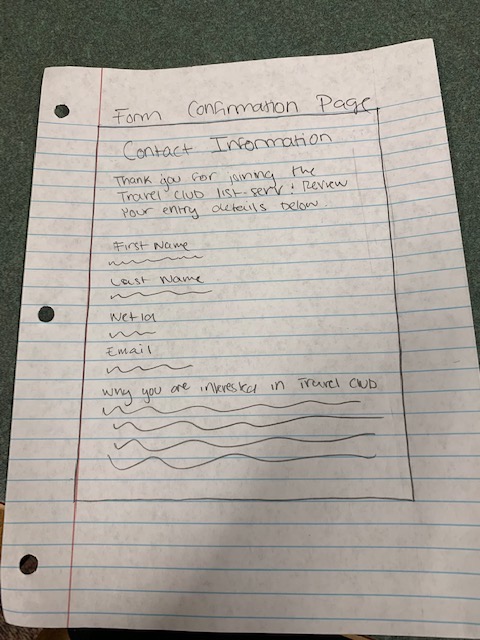 Form Confirmation Page
Contact Information
Thank you for joining the
Travel Club list-serv! Review
Your entry details below.
First Name
Last Name
Net Id
Email
Why you are interested in Travel Club